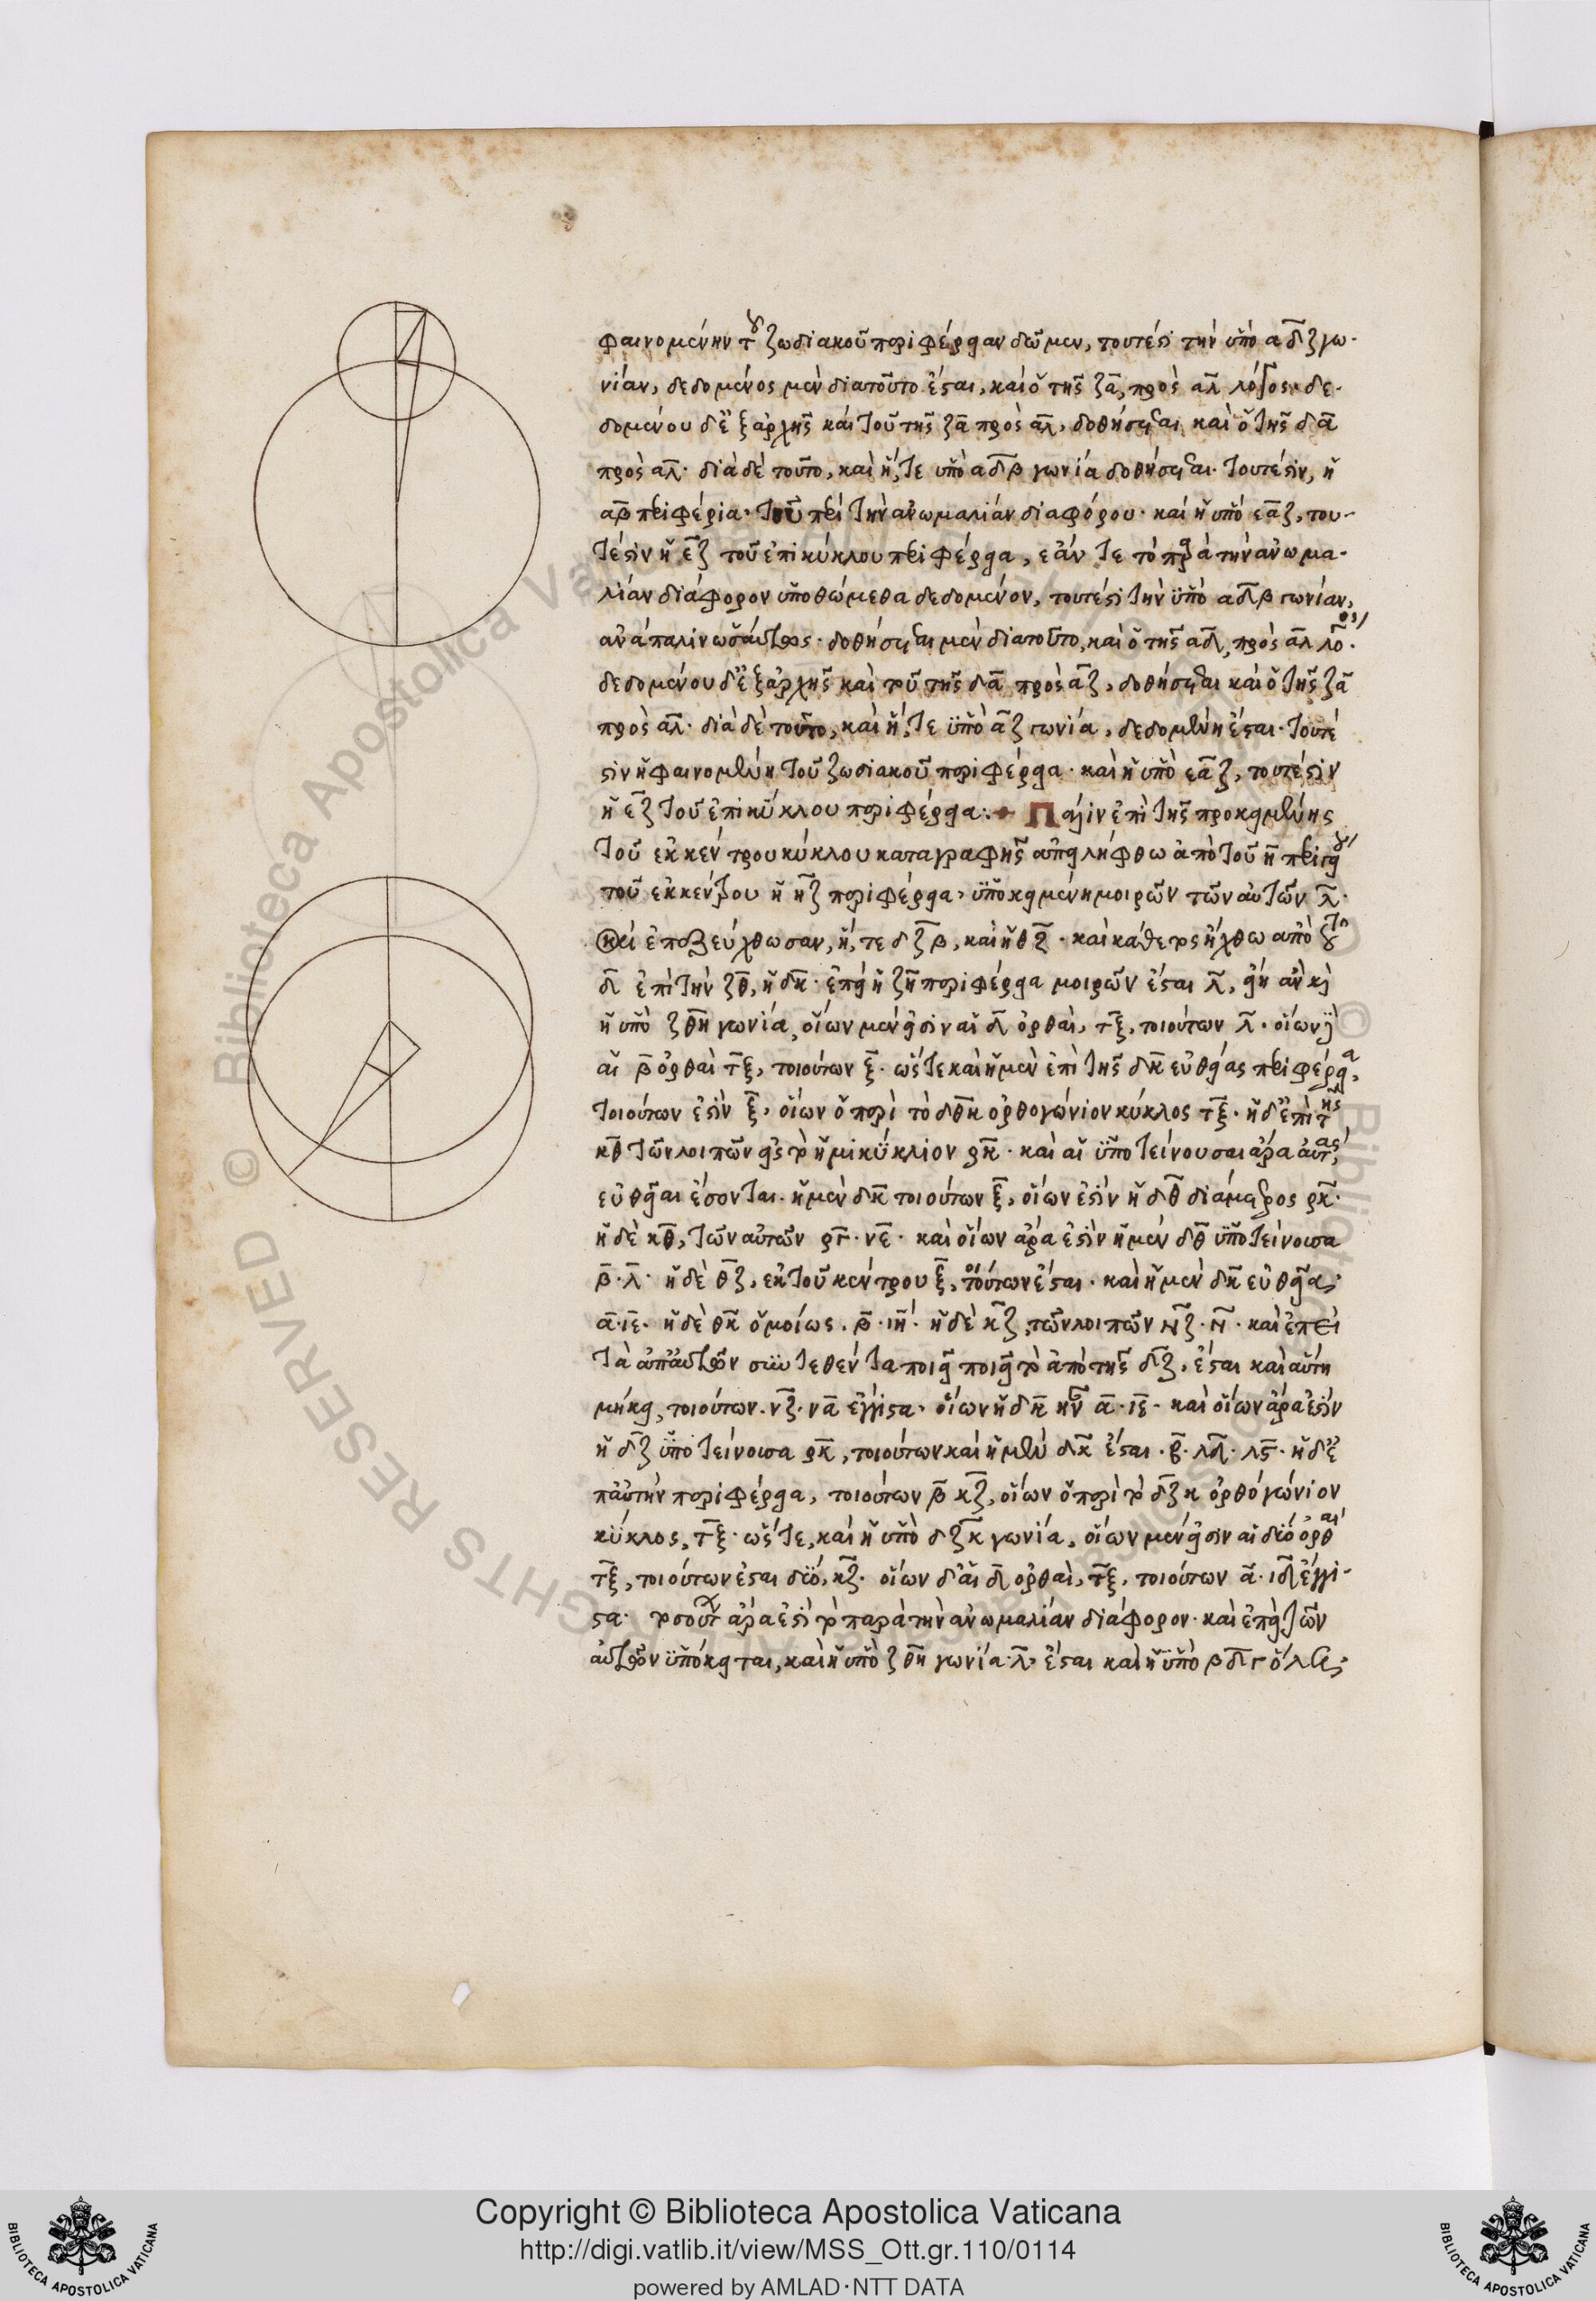 φαινομένην τοῦ ζωδιακοῦ περιφέρειαν δῶμεν, τουτέστι τὴν ὑπὸ αδζ γω-
νίαν, δεδομένος μὲν διατοῦτο ἔσται, καὶ ὁ τῆς ζα, πρὸς αλ λόγος· δε-
δομένου δὲ ἐξαρχῆς καὶ τοῦ τῆς ζα πρὸς αλ, δοθήσεται καὶ ὁ τῆς δα
πρὸς αλ· διὰ δὲ τοῦτο, καὶ ἥ, τε ὑπὸ αδβ γωνία δοθήσεται· τουτέστιν, ἡ
αβ περιφέρια· τοῦ περὶ τὴν ἀνωμαλίαν διαφόρου· καὶ ἡ ὑπὸ εαζ, του-
τέστιν ἡ εζ τοῦ ἐπικύκλου περιφέρεια, ἐάν τε τὸ παρὰ τὴν ἀνωμα-
λίαν διάφορον ὑποθώμεθα δεδομένον, τουτέστι τὴν ὑπὸ αδβ γωνίαν,
ἀνάπαλιν ὡσαύτως· δοθήσεται μὲν διατοῦτο, καὶ ὁ τῆς αδ, πρὸς αλ λόγος·
δεδομένου δὲ ἐξαρχῆς καὶ τοῦ τῆς δα πρὸς αζ, δοθήσεται καὶ ὁ τῆς ζα
πρὸς αλ· διὰ δὲ τοῦτο, καὶ ἥ, τε ὑπὸ αζ γωνία, δεδομένη ἔσται· τουτέ
στιν ἡ φαινομένη τοῦ ζωδιακοῦ περιφέρεια· καὶ ἡ ὑπὸ εαζ, τουτέστιν
ἡ εζ τοῦ ἐπικύκλου περιφέρεια:· Πάλιν ἐπὶ τῆς προκειμένης
τοῦ ἐκκέντρου κύκλου καταγραφῆς ἀπειλήφθω ἀπὸ τοῦ η περιγείου
τοῦ ἐκκέντρου ἡ ηζ περιφέρεια, ὑποκειμένη μοιρῶν τῶν αὐτῶν λ·
καὶ ἐπεζεύχθωσαν, ἥ, τε δζβ, καὶ ἡ θζ· καὶ κάθετος ἤχθω ἀπὸ τοῦ
δ ἐπὶ τὴν ζθ, ἡ δκ· ἐπεὶ ἡ ζη περιφέρεια μοιρῶν ἔσται λ, εἴη ἂν καὶ
ἡ ὑπὸ ζθη γωνία, οἵων μέν εἰσιν αἱ δ ὀρθαὶ, τξ, τοιούτων λ· οἵων δὲ
αἱ β ὀρθαὶ τξ, τοιούτων ξ· ὥστε καὶ ἡ μὲν ἐπὶ τῆς δκ εὐθείας περιφέρεια,
τοιούτων ἐστὶν ξ, οἵων ὁ περὶ τὸ δθκ ὀρθογώνιον κύκλος τξ· ἡ δὲ ἐπὶ τῆς
κθ τῶν λοιπῶν εἰς τὸ ἡμικύκλιον ρκ· καὶ αἱ ὑποτείνουσαι ἄρα αὐτὰς,
εὐθεῖαι ἔσονται· ἡ μὲν δκ τοιούτων ξ, οἵων ἐστὶν ἡ δθ διάμετρος ρκ·
ἡ δὲ κθ, τῶν αὐτῶν ργ· νε· καὶ οἵων ἄρα ἐστὶν ἡ μὲν δθ ὑποτείνουσα
β· λ· ἡ δὲ θζ, ἐκ τοῦ κέντρου ξ, τοιούτων ἔσται· καὶ ἡ μὲν δκ εὐθεῖα,
α· ιε· ἡ δὲ θκ ὁμοίως· β· ιη· ἡ δὲ κζ, τῶν λοιπῶν νζ· ν· καὶ ἐπεὶ
τὰ ἀπ' αὐτῶν συντεθέντα ποιεῖ ποιεῖ τὸ ἀπὸ τῆς δζ, ἔσται καὶ αὕτη
μήκει, τοιούτων· νζ· να ἔγγιστα, οἵων ἡ δκ ἦν α· ιε· καὶ οἵων ἄρα ἐστὶν
ἡ δζ ὑποτείνουσα ρκ, τοιούτων καὶ ἡ μὲν δκ ἔσται· β· λδ· λς· ἡ δὲ ἐ
π' αὐτὴν περιφέρεια, τοιούτων β κζ, οἵων ὁ περὶ τὸ δζκ ὀρθογώνιον
κύκλος, τξ· ὥστε, καὶ ἡ ὑπὸ δζκ γωνία, οἵων μέν εἰσιν αἱ δύο ὀρθαὶ
τξ, τοιούτων ἔσται δύο, κζ· οἵων δ' αἱ δ ὀρθαὶ, τξ, τοιούτων α· ιδ ἔγγι-
στα· τοσούτων ἄρα ἐστὶ τὸ παρὰ τὴν ἀνωμαλίαν διάφορον· καὶ ἐπεὶ τῶν
αὐτῶν ὑπόκειται, καὶ ἡ ὑπὸ ζθη γωνία· λ· ἔσται καὶ ἡ ὑπὸ βδγ ὅλη,
Copyright © Biblioteca Apostolica Vaticana
http://digi.vatlib.it/view/MSS_Ott.gr.110/0114
powered by AMLAD·NTT DATA
BIBLIOTECA APOSTOLICA VATICANA
BIBLIOTECA APOSTOLICA VATICANA